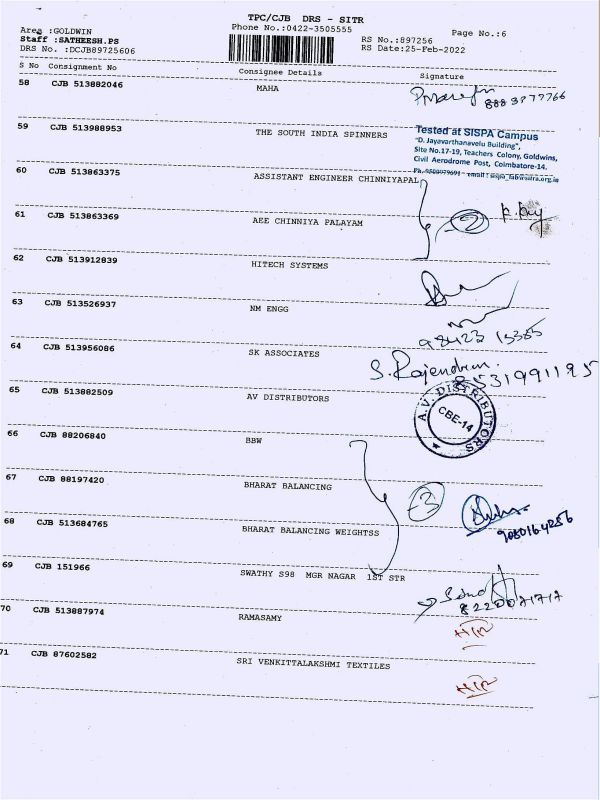 TPC/CJB DRS - SITR
Area :GOLDWIN
Phone No.:0422-3505555
Page No.:6
Staff :SATHEESH.PS
RS No.:897256
DRS No. :DCJB89725606
RS Date:25-Feb-2022
S No Consignment No Consignee Details Signature
58 CJB 513882046 MAHA
59 CJB 513988953 THE SOUTH INDIA SPINNERS
Tested at SISPA Campus
"D. Jayavarthanavelu Building",
Site No.17-19, Teachers Colony, Goldwins,
Civil Aerodrome Post, Coimbatore-14,
60 CJB 513863375 ASSISTANT ENGINEER CHINNIYAPAL
61 CJB 513863369 AEE CHINNIYA PALAYAM
2
62 CJB 513912839 HITECH SYSTEMS
63 CJB 513526937 NM ENGG
98423 15385
64 CJB 513956086 SK ASSOCIATES
S. Rajendran
8531991195
65 CJB 513882509 AV DISTRIBUTORS
A. V. DISTRIBUTORS
CBE-14
66 CJB 88206840 BBW
67 CJB 88197420 BHARAT BALANCING
3
68 CJB 513684765 BHARAT BALANCING WEIGHTSS
9080164256
69 CJB 151966 SWATHY S98 MGR NAGAR 1ST STR
8220071717
70 CJB 513887974 RAMASAMY
71 CJB 87602582 SRI VENKITTALAKSHMI TEXTILES